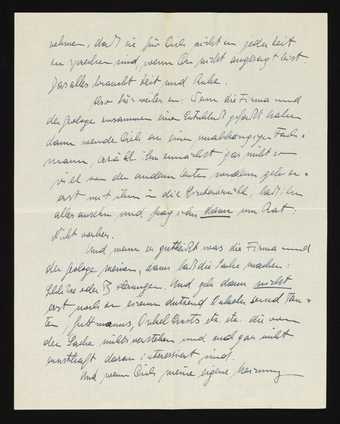 nehmen, dass sie für Dich nicht zu jeder Zeit
zu sprechen sind, wenn Du nicht angesagt bist.
Das alles braucht Zeit und Ruhe.
Also hör weiter zu. Wenn die Firma und
der zusammen einen gefasst haben
dann wende Dich an einen unabhängigen Fach-
mann, erzähl ihm zunächst gar nicht so
viel von den anderen Leuten sondern geh
erst mit ihm in die lass ihn
alles ansehen und frag ihn dann um Rat.
Nicht vorher.
Und wenn er gutheisst was die Firma und
der meinen, dann lass die Sache machen:
oder Und geh dann nicht
erst noch zu einem dutzend Onkels und Tan-
ten, Onkel etc. etc. die von
der Sache nichts verstehen und auch gar nicht
ernsthaft daran interessiert sind.
Und wenn Dich meine eigene Meinung